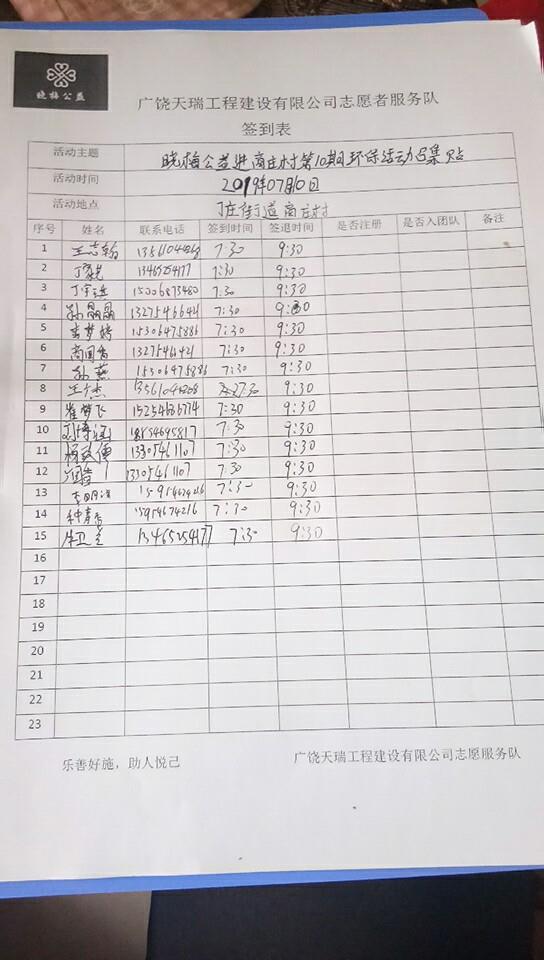 晓梅公益
广饶天瑞工程建设有限公司志愿者服务队
签到表
活动主题 晓梅公益进商庄村第10期环保活动召集贴
活动时间 2019年07月10日
活动地点 丁庄街道商庄村
序号 姓名 联系电话 签到时间 签退时间 是否注册 是否入团队 备注
1 王志翰 7:30 9:30
2 7:30 9:30
3 15006873480 7:30 9:30
4 孙晶晶 13275466421 7:30 9:30
5 15306475886 7:30 9:30
6 7:30 9:30
7 孙燕 15306475886 7:30 9:30
8 7:30 9:30
9 崔梦飞 7:30 9:30
10 7:30 9:30
11 13305461107 7:30 9:30
12 13305461107 7:30 9:30
13 7:30 9:30
14 15954674216 7:30 9:30
15 牛卫兰 13465254177 7:30 9:30
16
17
18
19
20
21
22
23
乐善好施，助人悦己 广饶天瑞工程建设有限公司志愿服务队